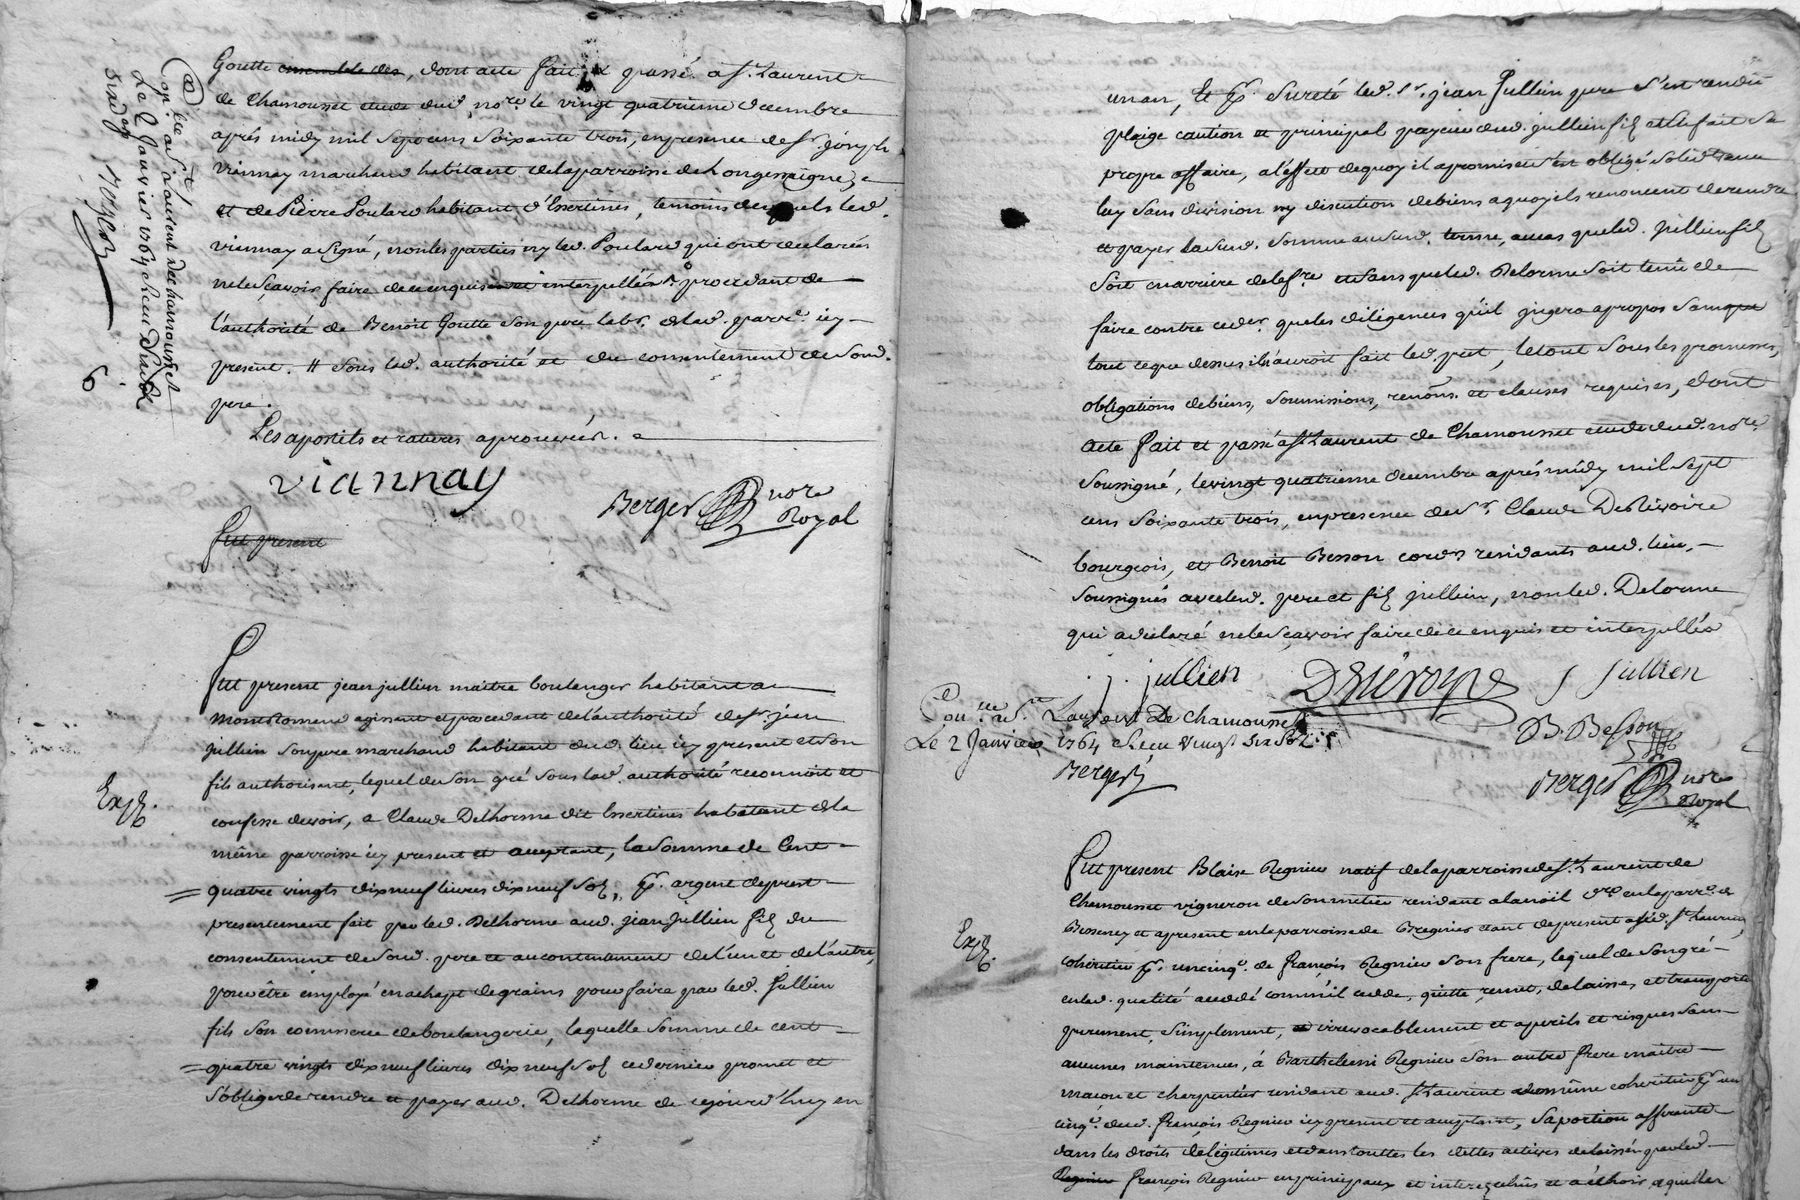 Goutte ensemble des, dont acte fait & passé a St. Laurent
de Chamousset etude dud. nore. le vingt quatrieme decembre
aprés midy mil sept cens soixante trois, en presence de sr. joseph
viannay marchand habitant de la parroisse de Longessaigne,
et de Pierre Poulard habitant d'Essertines, temoins desquels led.
viannay a signé, non les parties ny led. Poulard qui ont declarées
ne le sçavoir faire de ce enquis et interpellés procedant de
l'authorité de Benoit Goutte son pere labr. de lad. parre. icy
present. # sous lad. authorité et du consentement de sond.
pere.
Les apostils et ratures aprouvées.
viannay
Berger nore
Royal
fut present
a St Laurent de chamousset
Le 2 Janvier 1764 Receu
Berger
6
Fut present jean jullien maitre boulanger habitant a
Montromand agissant et procedant de l'authorité de sr. jean
jullien son pere marchand habitant dud. lieu icy present et son
fils authorisant, lequel de son gré sous lad. authorité reconnoit et
confesse devoir, a Claude Delhorme dit Essertines habitant de la
même parroisse icy present et acceptant, la somme de Cent
quatre vingts dix neuf livres dix neuf sols, pr. argent de prest
presentement fait par led. Delhorme aud. jean Jullien fils du
consentement de sond. pere et au contentement de l'un et de l'autre,
pour être employé en achapt de grains pour faire par led. Jullien
fils son commerce de boulangerie, laquelle somme de cent
quatre vingts dix neuf livres dix neuf sols ce dernier promet et
s'oblige de rendre et payer aud. Delhorme de cejourd'huy en
Exp.
un an, Et pr. sureté led. sr. jean Jullien pere s'est rendu
pleige caution et principal payeur dud. jullien fils et le fait sa
propre affaire, a l'effet de quoy il a promis et s'est obligé solidt. avec
luy sans division ny discution de biens a quoy ils renoncent de rendre
et payer la susd. somme au susd. terme, au cas que led. Jullien fils
soit en arriere de le fre. et sans que led. Delorme soit tenu de
faire contre ceder. queles diligences qu'il jugera apropos sans que
tout ce que dessus il n'auroit fait led. pret, le tout sous les promesses,
obligations de biens, soumissions, renons. et clauses requises, dont
acte fait et passé a St. Laurent de Chamousset etude dud. nore.
soussigné, le vingt quatrieme decembre aprés midy mil sept
cens soixante trois, en presence de sr. Claude Deriévoire
bourgeois, et Benoit Besson cordr. residants aud. lieu,
soussignés avec led. pere et fils jullien, non led. Delorme
qui a declaré ne le sçavoir faire de ce enquis et interpellés
j. jullien
J Jullien
B. Besson
Laurent De Chamousset
Le 2 Janvier 1764 Receu vingt six sols
Berger
Berger nore
Royal
Exp.
Fut present Blaise Regnier natif de la parroisse de St. Laurent de
Chamousset vigneron de son metier residant
Bessenay et a present en la parroisse de
coheritier pr. un cinqe. de françois Regnier son frere, lequel de son gré
en lad. qualité a cedé comme il cede, quitte, remet, delaisse, et transporte
purement, simplement, et irrevocablement et a perils et risques sans
aucunes maintenues, á Barthelemi Regnier son autre frere maitre
macon et charpentier residant aud. St. Laurent même coheritier pr. un
cinqe. dud. françois Regnier icy present et acceptant, sa portion afferante
dans les droits de légitimes et dans touttes les dettes actives delaissées par led.
Regnier françois Regnier en principaux et interez echûs et a échoir